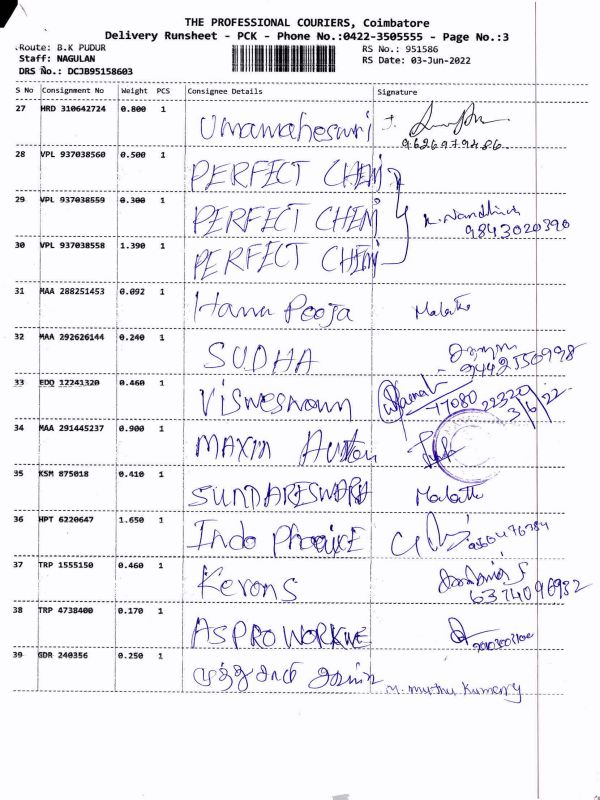 THE PROFESSIONAL COURIERS, Coimbatore
Delivery Runsheet - PCK - Phone No.:0422-3505555 - Page No.:3
Route: B.K PUDUR RS No.: 951586
Staff: NAGULAN RS Date: 03-Jun-2022
DRS No.: DCJB95158603
S No Consignment No Weight PCS Consignee Details Signature
27 HRD 310642724 0.800 1 Umamaheswri
28 VPL 937038560 0.500 1 PERFECT CHEM
29 VPL 937038559 0.300 1 PERFECT CHEM
9843020390
30 VPL 937038558 1.390 1 PERFECT CHEM
31 MAA 288251453 0.092 1 Pooja
32 MAA 292626144 0.240 1 SUDHA
9442550998
33 EDQ 12241320 0.460 1
77080 22320
3/6/22
34 MAA 291445237 0.900 1 MAXIM
35 KSM 875018 0.410 1 SUNDARESWARA
36 HPT 6220647 1.650 1 Indo
37 TRP 1555150 0.460 1 Kevons
6374096932
38 TRP 4738400 0.170 1 ASPRO
39 GDR 240356 0.250 1 M. muthu